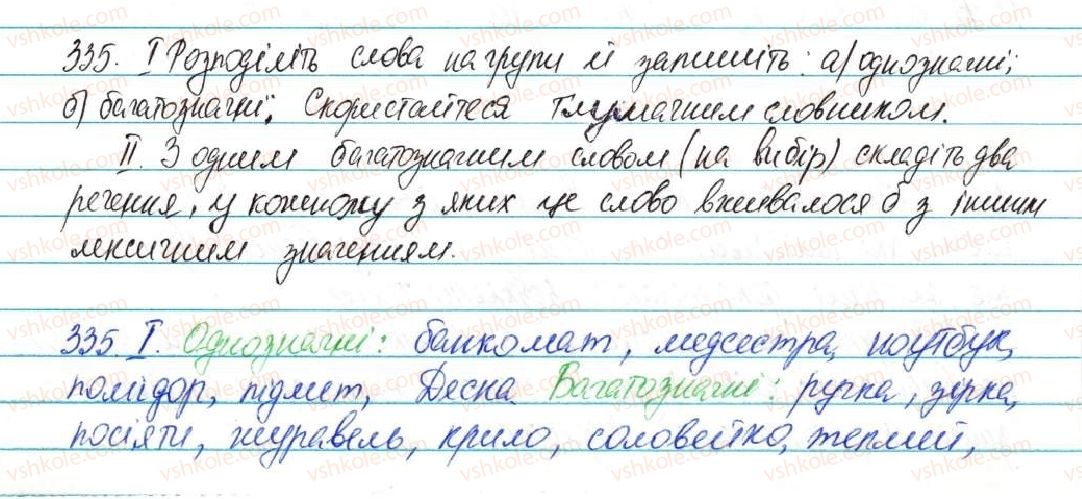 335. І Розподіліть слова на групи й запишіть: а) однозначні;
б) багатозначні; Скористайтеся Тлумачним словником.
ІІ. З одним багатозначним словом (на вибір) складіть два
речення, у кожному з яких це слово вживалося б з іншим
лексичним значенням.
335. І. Однозначні: банкомат, медсестра, ноутбук,
помідор, підмет, Десна. Багатозначні: ручка, зірка,
посіяти, журавель, крило, соловейко, теплий,